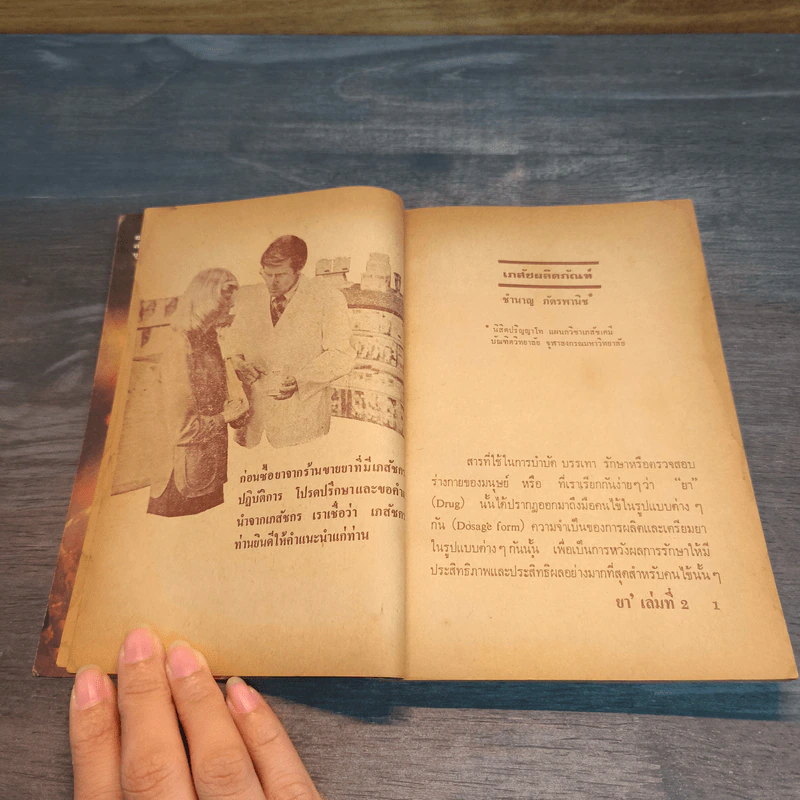 ก่อนซื้อยาจากร้านขายยาที่มีเภสัชกร
ปฏิบัติการ โปรดปรึกษาและขอคำแ
นำจากเภสัชกร เราเชื่อว่า เภสัชกร
ท่านยินดีให้คำแนะนำแก่ท่าน
เภสัชผลิตภัณฑ์
ชำนาญ ภัตรพานิช*
* นิสิตปริญญาโท แผนกวิชาเภสัชเคมี
บัณฑิตวิทยาลัย จุฬาลงกรณมหาวิทยาลัย
สารที่ใช้ในการบำบัด บรรเทา รักษาหรือตรวจสอบ
ร่างกายของมนุษย์ หรือ ที่เราเรียกกันง่ายๆว่า “ยา”
(Drug) นั้นได้ปรากฏออกมาถึงมือคนใช้ในรูปแบบต่าง ๆ
กัน (Dosage form) ความจำเป็นของการผลิตและเตรียมยา
ในรูปแบบต่าง ๆ กันนั้น เพื่อเป็นการหวังผลการรักษาให้มี
ประสิทธิภาพและประสิทธิผลอย่างมากที่สุดสำหรับคนไข้นั้น ๆ
ยา' เล่มที่ 2 1